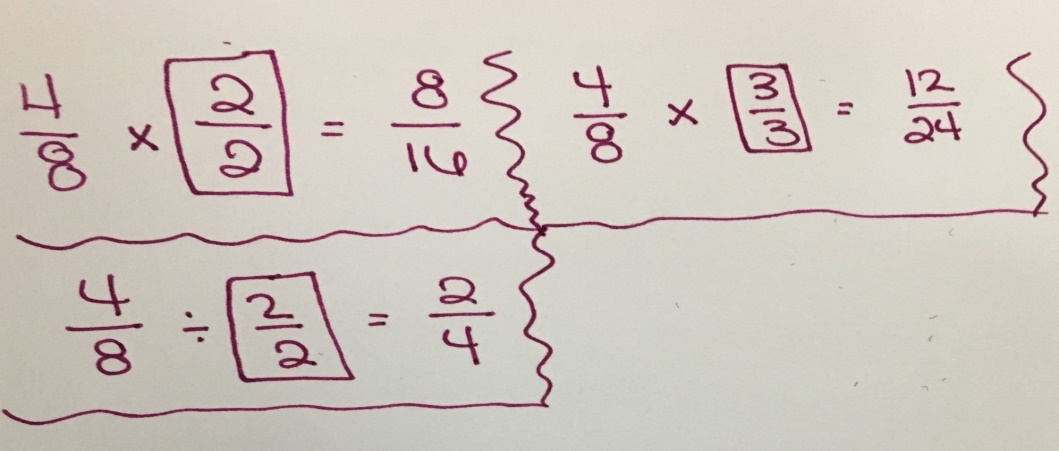 4/8 × 2/2 = 8/16
4/8 × 3/3 = 12/24
4/8 ÷ 2/2 = 2/4